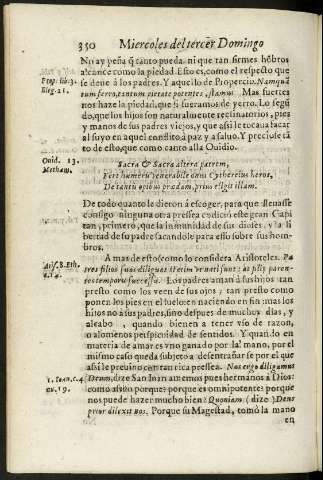 350 Miercoles del tercer Domingo
No ay peña q̃ tanto pueda, ni que tan firmes hõbros
Prop. lib. 3. alcance como la piedad. Esto es, como el respecto que
Eleg. 21. se deue á los padres. Y aquello de Propercio. Namquã
tum ferro, tantum
Mas fuertes
nos haze la piedad, que si fueramos de yerro. Lo segũ
do, que los hijos son naturalmente
pies
y manos de sus padres viejos, y que assi le tocaua sacar
al suyo en aquel conflito, à paz y salvo. Y preciose tã
to de esto, que como canto alla Ouidio.
Ouid. 13. Sacra & Sacra altera patrem,
Metham. Fert humeris venerabile onus Cythereius heros,
De tantis opibus prædam, pius elegit illam.
De todo quanto le dieron á escoger, para que lleuasse
consigo ninguna otra pressea codició este gran Capi
tan, primero, que la inmunidad de sus dioses, y la li
bertad de su padre sacandole para esso sobre sus hom-
bros.
A mas de esto (como lo considera Aristoteles. Pa
Arist. 8. Eth. tres filios suos diligunt
c. 14. tes temporis successu. Los padres aman á sus hijos tan
presto como los veen de sus ojos, tan presto como
ponen los pies en el suelo en naciendo en fin: mas los
hijos no à sus padres, sino despues de muchy dias, y
alcabo, quando bienen a tener vso de razon,
o alomenos perspicuidad de sentidos. Y quando en
materia de amar es vno ganado por la mano, por el
mismo caso queda subjeto a desentrañarse por el que
assi le preuino con tan rica pressea. Nos ergo diligamus
1. Ioan. c. 4. Deum, dize San Iuan amemos pues hermanos á Dios:
nu. 19. como assi? porque? porque es omnipotente? porque
nos puede hazer mucho bien? Quoniam (dize) Deus
prior dilexit nos. Porque su Magestad, tomó la mano
en